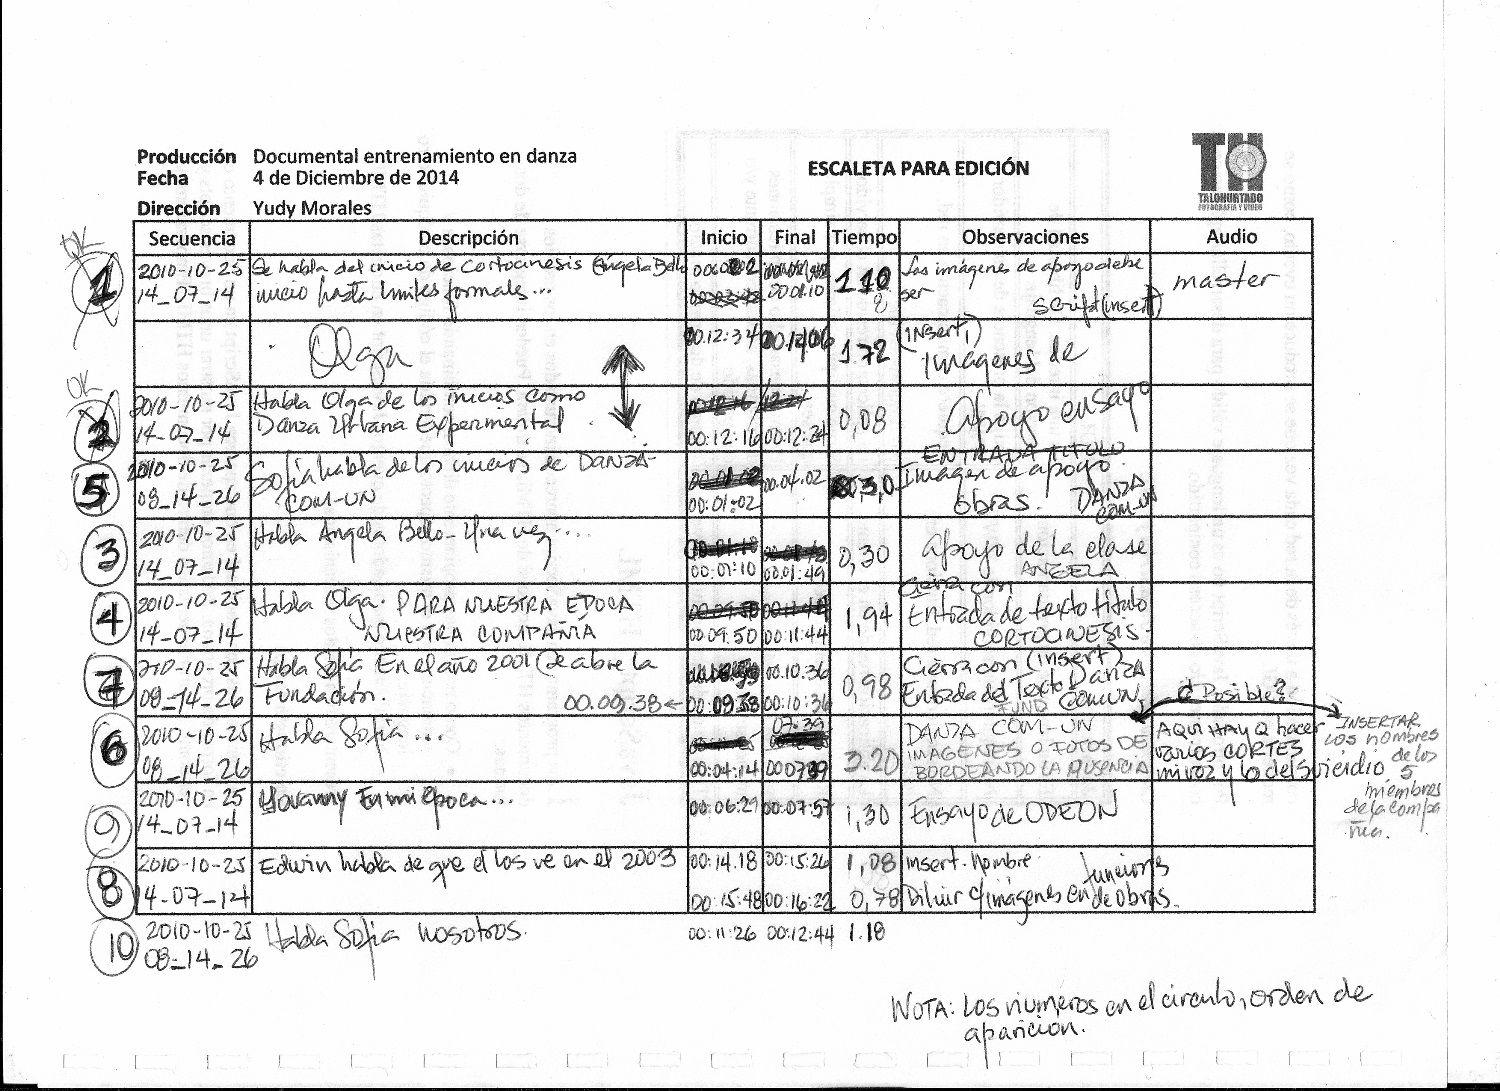 Producción Documental entrenamiento en danza
Fecha 4 de Diciembre de 2014
ESCALETA PARA EDICIÓN
TH
TALOHURTADO
FOTOGRAFIA Y VIDEO
Dirección Yudy Morales
Secuencia Descripción Inicio Final Tiempo Observaciones Audio
OK
1 2010-10-25 Se habla del inicio de Cortocinesis Ángela Bello
14_07_14 inicio hasta límites formales... 00.01.10 1.10 Las imágenes de apoyo debe
ser script (insert) master
Olga 00.12:34 1.72 (INsert,)
Imágenes de
OK
2 2010-10-25 Habla Olga de los inicios como
14-07_14 Danza Urbana Experimental 00:12:16 00:12:34 0,08 Apoyo ensayo
ENTRADA TITULO
5 2010-10-25 Sofía habla de los inicios de DANZA-
08_14_26 COM-UN 00:01:02 00.04.02 3,0 Imagen de apoyo
obras. DANZA
COM-UN
3 2010-10-25 Habla Angela Bello - Una vez....
14_07_14 00:01:10 00.01:49 0,30 Apoyo de la clase
ANGELA
4 2010-10-25 Habla Olga. PARA NUESTRA EPOCA
14-07_14 NUESTRA COMPAÑIA 00:09:50 00:11:44 1,94 Cierra con
Entrada de texto título
CORTOCINESIS-
7 2010-10-25 Habla Sofía En el año 2001 (Se abre la 00.10.36
08_14_26 Fundación. 00.09.38← 00:09.38 00:10:36 0,98 Cierra con (insert)
Entrada del Texto Danza
FUND COMUN,
¿Posible?
6 2010-10-25 Habla Sofía ... 07:39
08_14_26 00:04:14 000739 3.20 DANZA COM-UN
IMAGENES O FOTOS DE
BORDEANDO LA AUSENCIA
AQUI HAY Q hacer
varios CORTES
mi voz y lo del suicidio
INSERTAR
los nombres
de los
5
miembros
de la compa
ñía.
9 2010-10-25 Yovanny En mi época...
14_07_14 00:06:29 00:07:57 1,30 Ensayo de ODEON
8 2010-10-25 Edwin habla de que él los ve en el 2003 00:14.18 00:15:26 1,08 Insert. Nombre
14-07-14 00:15:48 00:16:22 0,78 Diluir c/imágenes en de obras.
10 2010-10-25 Habla Sofía nosotros. 00:11:26 00:12:44 1.18
08_14_26
NOTA: Los números en el círculo, orden de
aparición.